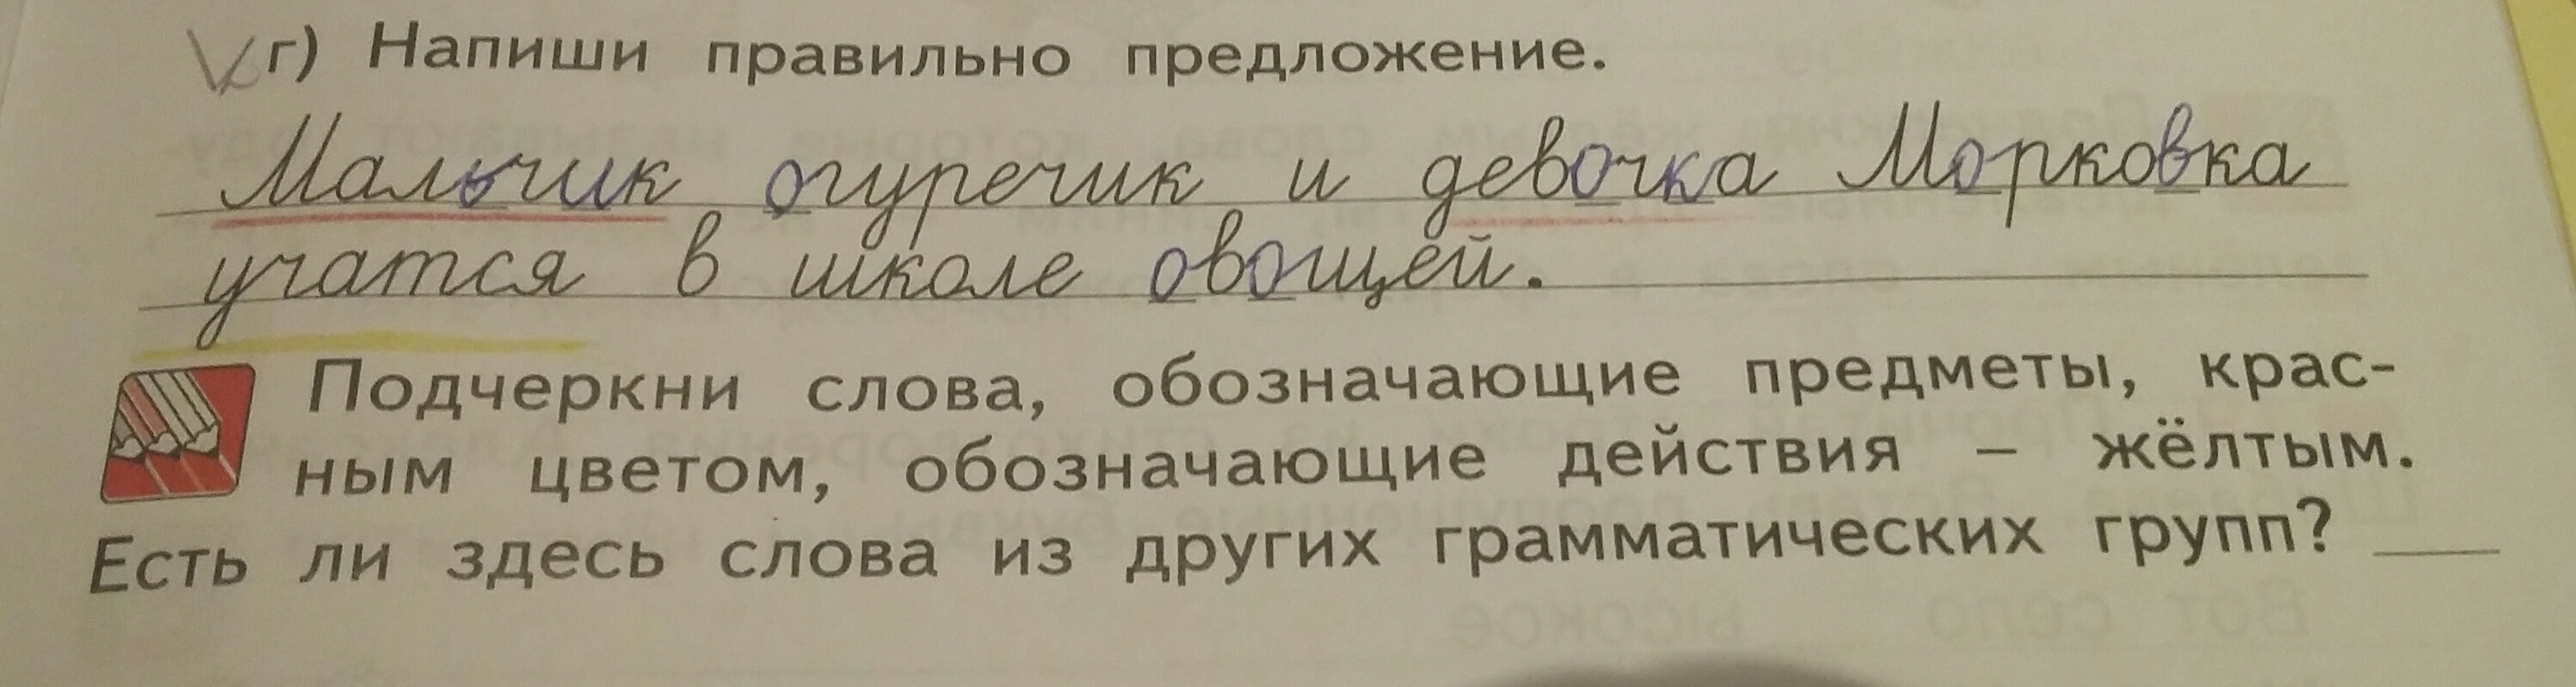 г) Напиши правильно предложение.
Мальчик огуречик и девочка Морковка
учатся в школе овощей.
Подчеркни слова, обозначающие предметы, крас-
ным цветом, обозначающие действия – жёлтым.
Есть ли здесь слова из других грамматических групп?